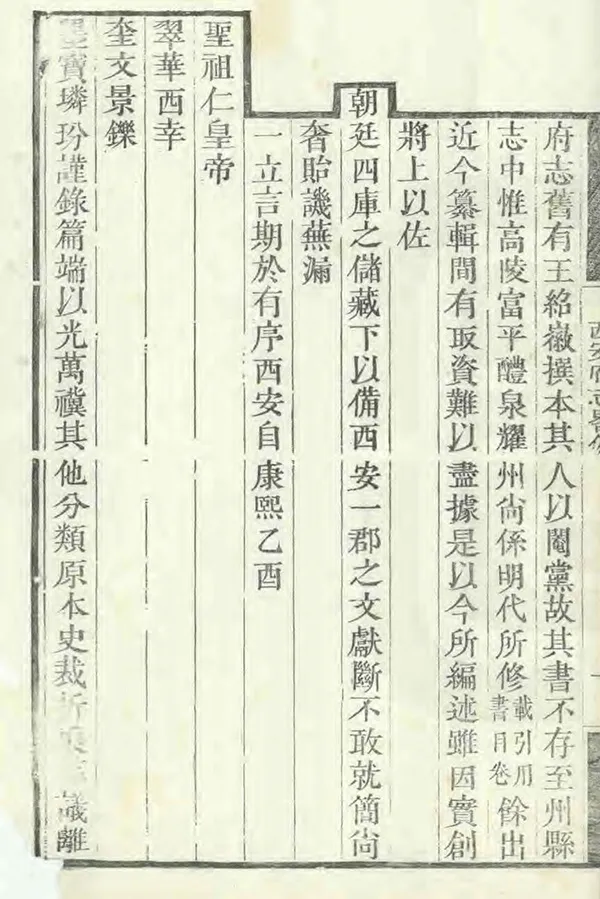 府志舊有王紹徽撰本其人以閹黨故其書不存至州縣
志中惟高陵富平醴泉耀州尙係明代所修載引用書目卷餘出
近今纂輯間有取資難以盡據是以今所編述雖因實創
將上以佐
朝廷四庫之儲藏下以備西安一郡之文獻斷不敢就簡尙
奢貽譏蕪漏
一立言期於有序西安自康熙乙酉
聖祖仁皇帝
翠華西幸
奎文景鑠
寶璘玢謹錄篇端以光萬禩其他分類原本史裁折議離
西安府志